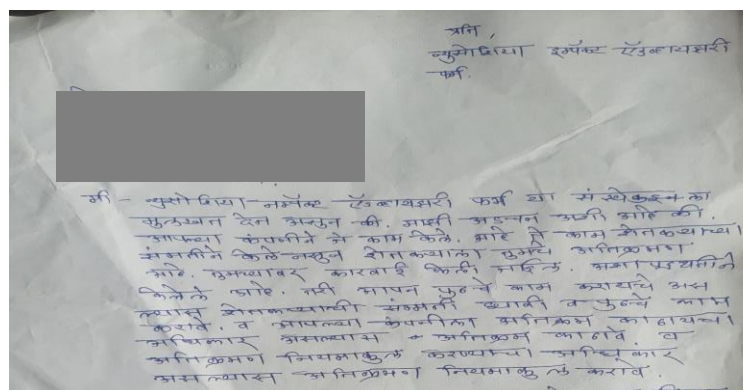 प्रति,
न्युसोशिया इम्पॅक्ट ऍडव्हायझरी
फर्म.
मी - न्युसोशिया नम्पॅक्ट ऍडव्हायझरी फर्म या संस्थेकडून ला
मुलाखत देत असुन की. माझी अडचन अशी आहे की.
आपल्या कंपनीने जे काम केले. आहे ते काम शेतकऱ्याच्या
संमतीने केले नसुन शेतकऱ्याला तुमचे अतिक्रमण
आहे. तुमच्यावर कारवाई केली जाईल. अशा पद्धतीने
केलेले आहे. तरी आपन पुढचे काम करायचे अस
ल्यास शेतकऱ्याची संमती घ्यावी व पुढचे काम
करावे. व आपल्या कंपनीला अतिक्रम काढायचा
अधिकार असल्यास अतिक्रम काढावे. व
अतिक्रमण नियमाकुल करण्याचा अधिकार
असल्यास अतिक्रमण नियमाकुल करावे.